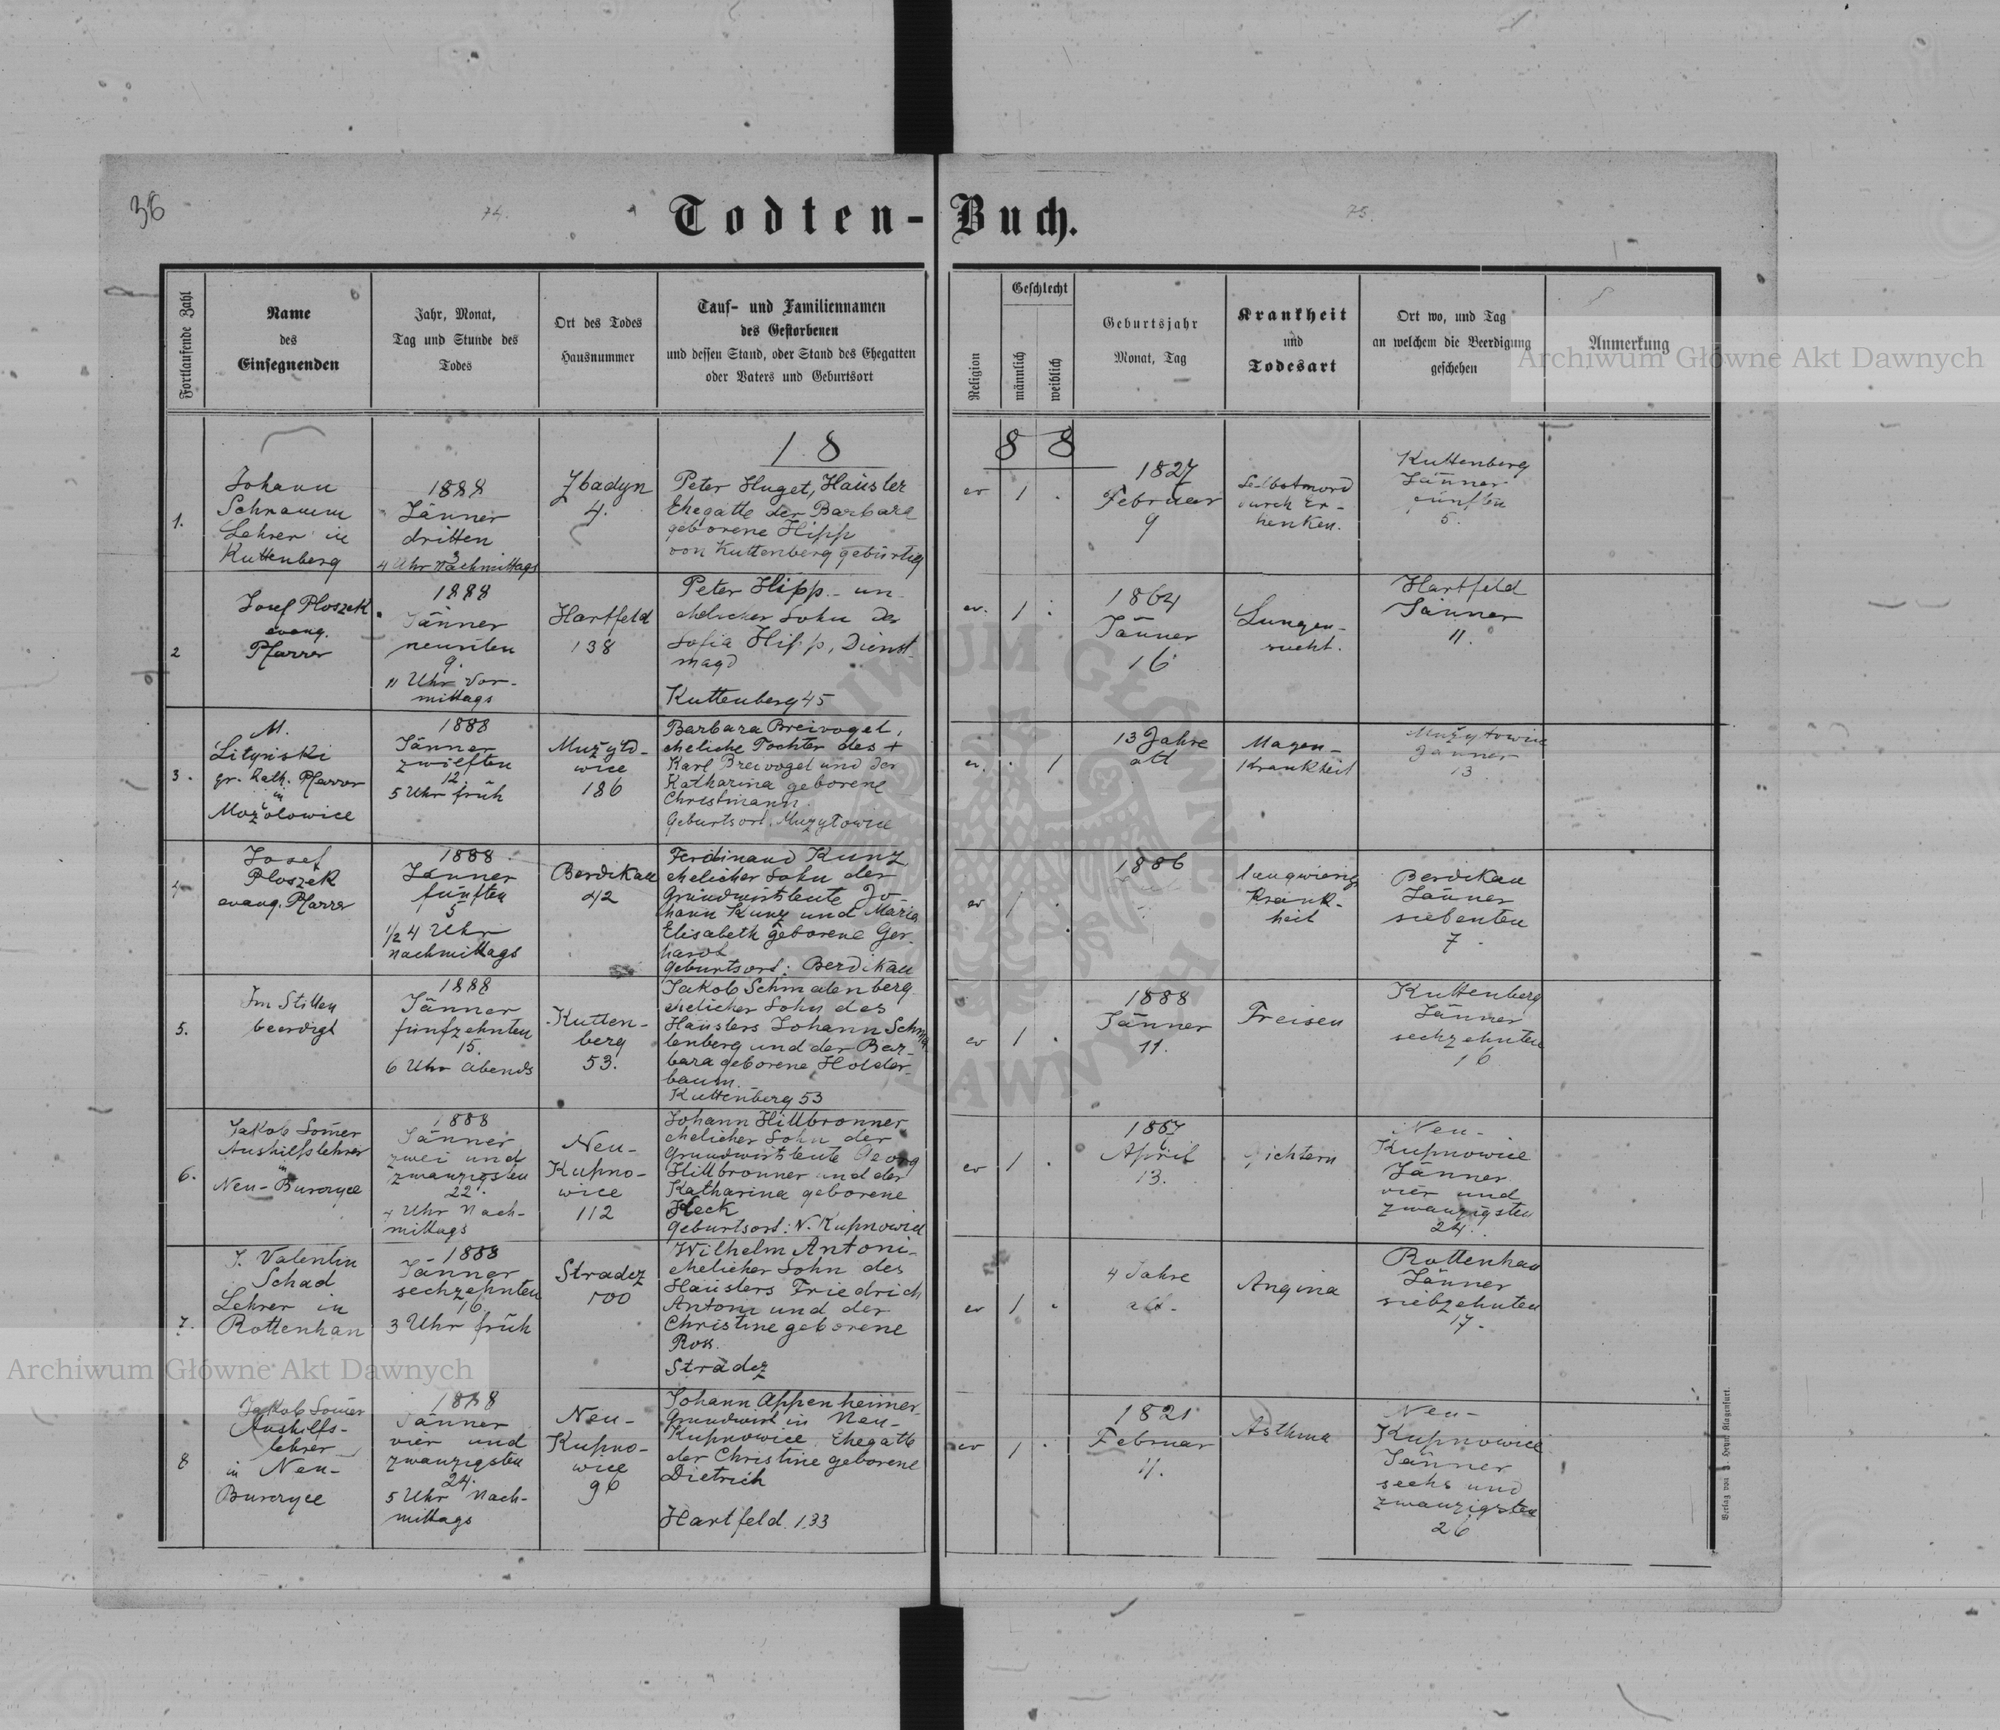 36
74.
75.
Todten-Buch.
Fortlaufende Zahl
Name
des
Einsegnenden
Jahr, Monat,
Tag und Stunde des
Todes
Ort des Todes
Hausnummer
Tauf- und Familiennamen
des Gestorbenen
und dessen Stand, oder Stand des Ehegatten
oder Vaters und Geburtsort
Religion
Geschlecht
männlich
weiblich
Geburtsjahr
Monat, Tag
Krankheit
und
Todesart
Ort wo, und Tag
an welchem die Beerdigung
geschehen
Anmerkung
Archiwum Główne Akt Dawnych
1888
1.
Johann
Schramm
Lehrer in
Kuttenberg
1888
Jänner
dritten
3
4 Uhr Nachmittags
Zbadyn
4.
Peter Huget, Häusler
Ehegatte der Barbara
geborene Hipp
von Kuttenberg gebürtig
ev
1
.
1827
Februar
9
Selbstmord
durch Er-
henken.
Kuttenberg
Jänner
fünften
5.
2
Josef Ploszek
evang.
Pfarrer
1888
Jänner
neunten
9.
11 Uhr Vor-
mittags
Hartfeld
138
Peter Hipp - un-
ehelicher Sohn der
Sofia Hipp, Dienst-
magd
Kuttenberg 45
ev.
1
.
1864
Jänner
16
Lungen-
sucht.
Hartfeld
Jänner
11.
3.
M.
Lityński
gr. kath. Pfarrer
in
Mozolowice
1888
Jänner
zwölften
12.
5 Uhr früh
Mużyło-
wice
186
Barbara Breivogel,
eheliche Tochter des +
Karl Breivogel und der
Katharina geborene
Christmann.
Geburtsort: Muzyłowice
ev.
.
1
13 Jahre
alt
Magen-
krankheit
Mużyłowice
Jänner
13
4
Josef
Ploszek
evang. Pfarrer
1888
Jänner
fünften
5
1/2 4 Uhr
Nachmittags
Berdikau
42
Ferdinand Kunz
ehelicher Sohn der
Grundwirtsleute Jo-
hann Kunz und Maria
Elisabeth geborene Ger-
hardt
Geburtsort: Berdikau
ev
1
.
1886
langwierige
Krank-
heit
Berdikau
Jänner
siebenten
7.
5.
Im Stillen
beerdigt
1888
Jänner
fünfzehnten
15.
6 Uhr Abends
Kutten-
berg
53.
Jakob Schmalenberg
ehelicher Sohn des
Häuslers Johann Schma-
lenberg und der Bar-
bara geborene Holder-
baum.
Kuttenberg 53
ev
1
.
1888
Jänner
11.
Freisen
Kuttenberg
Jänner
sechzehnten
16
6.
Jakob Somer
Aushilfslehrer
in
Neu-Burczyce
1888
Jänner
zwei und
zwanzigsten
22.
4 Uhr Nach-
mittags
Neu-
Kupno-
wice
112
Johann Hillbronner
ehelicher Sohn der
Grundwirtsleute Georg
Hillbronner und der
Katharina geborene
Heck
Geburtsort: N. Kupnowice
ev
1
.
1887
April
13.
Fichtern
Neu-
Kupnowice
Jänner
vier und
zwanzigsten
24.
7.
J. Valentin
Schad
Lehrer in
Rottenhan
1888
Jänner
sechzehnten
16
3 Uhr früh
Stradcz
100
Wilhelm Antoni-
ehelicher Sohn des
Häuslers Friedrich
Antoni und der
Christine geborene
Ross.
Stradcz
ev
1
.
4 Jahre
alt.
Angina
Rottenhan
Jänner
siebzehnten
17.
Archiwum Główne Akt Dawnych
8
Jakob Somer
Aushilfs-
lehrer
in Neu-
Burczyce
1888
Jänner
vier und
zwanzigsten
24.
5 Uhr Nach-
mittags
Neu-
Kupno-
wice
96
Johann Appenheimer
Grundwirt in Neu-
Kupnowice, Ehegatte
der Christine geborene
Dietrich
Hartfeld 133
ev
1
.
1821
Februar
11.
Asthma
Neu-
Kupnowice
Jänner
sechs und
zwanzigsten
26